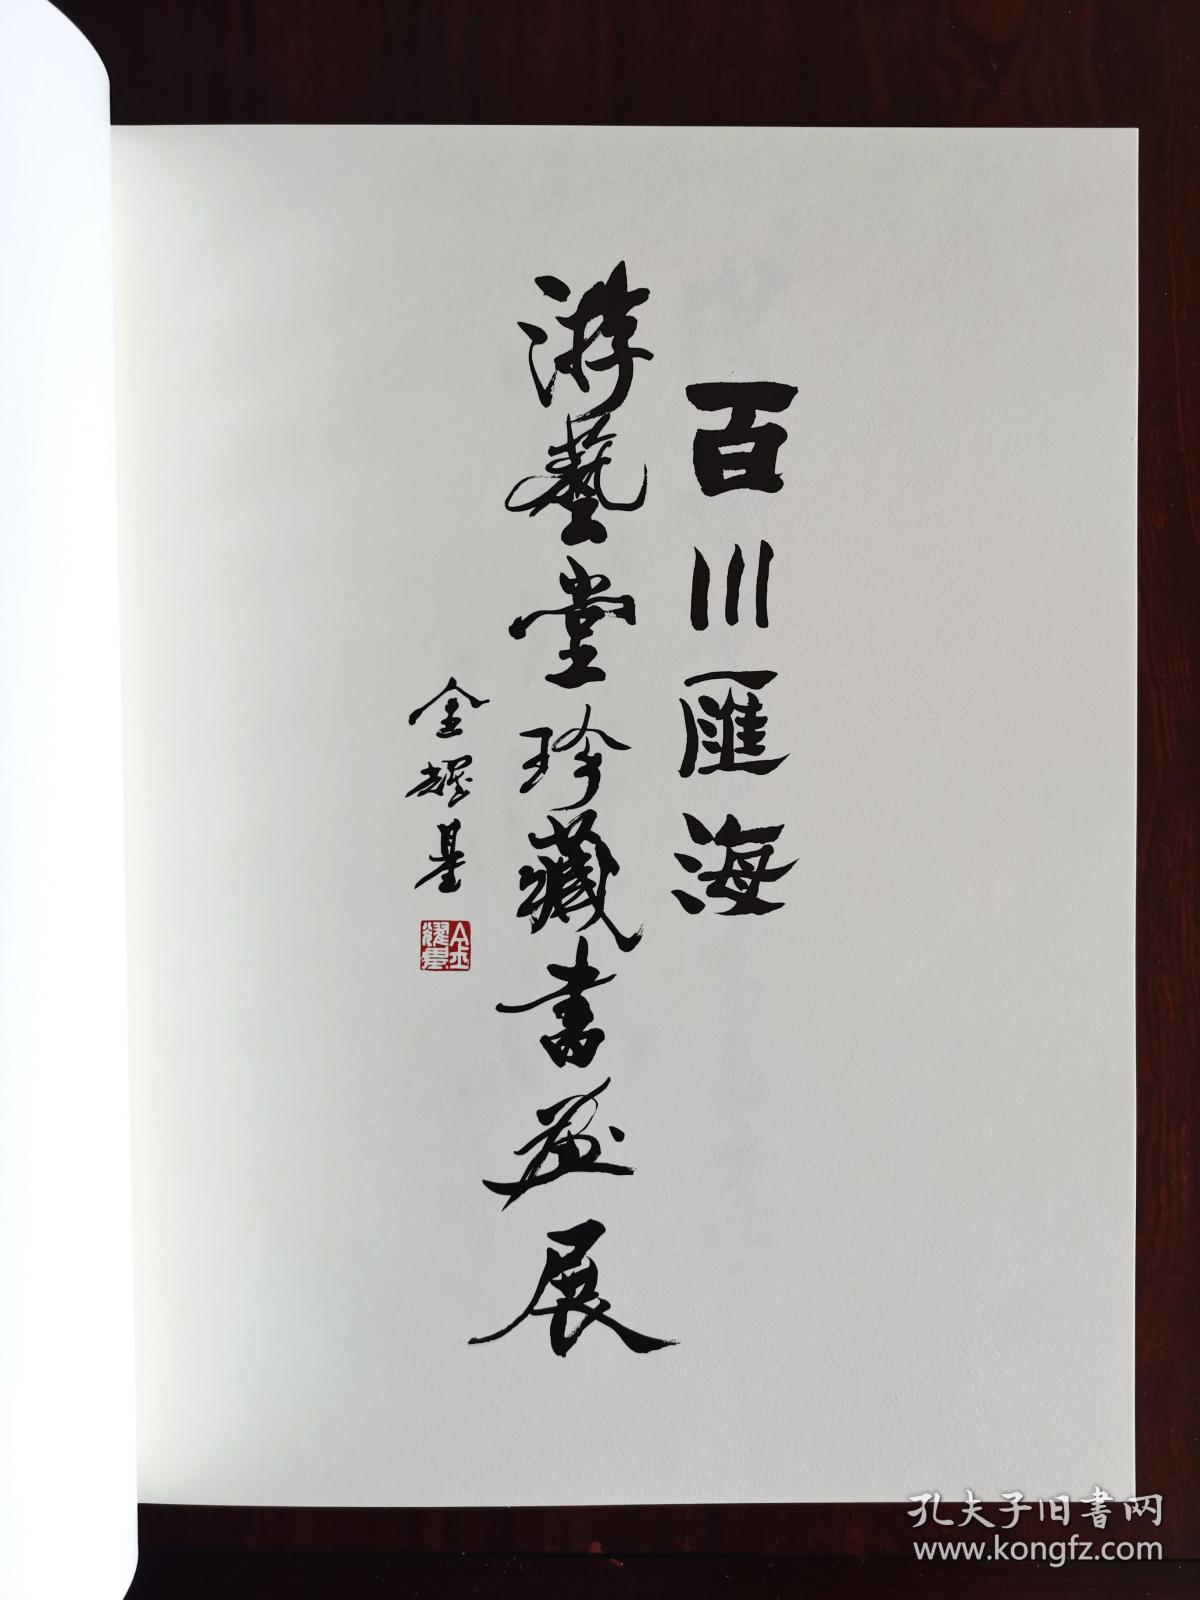 百川匯海
游藝堂珍藏書畫展
金耀基
金耀基
孔夫子旧書网
www.kongfz.com